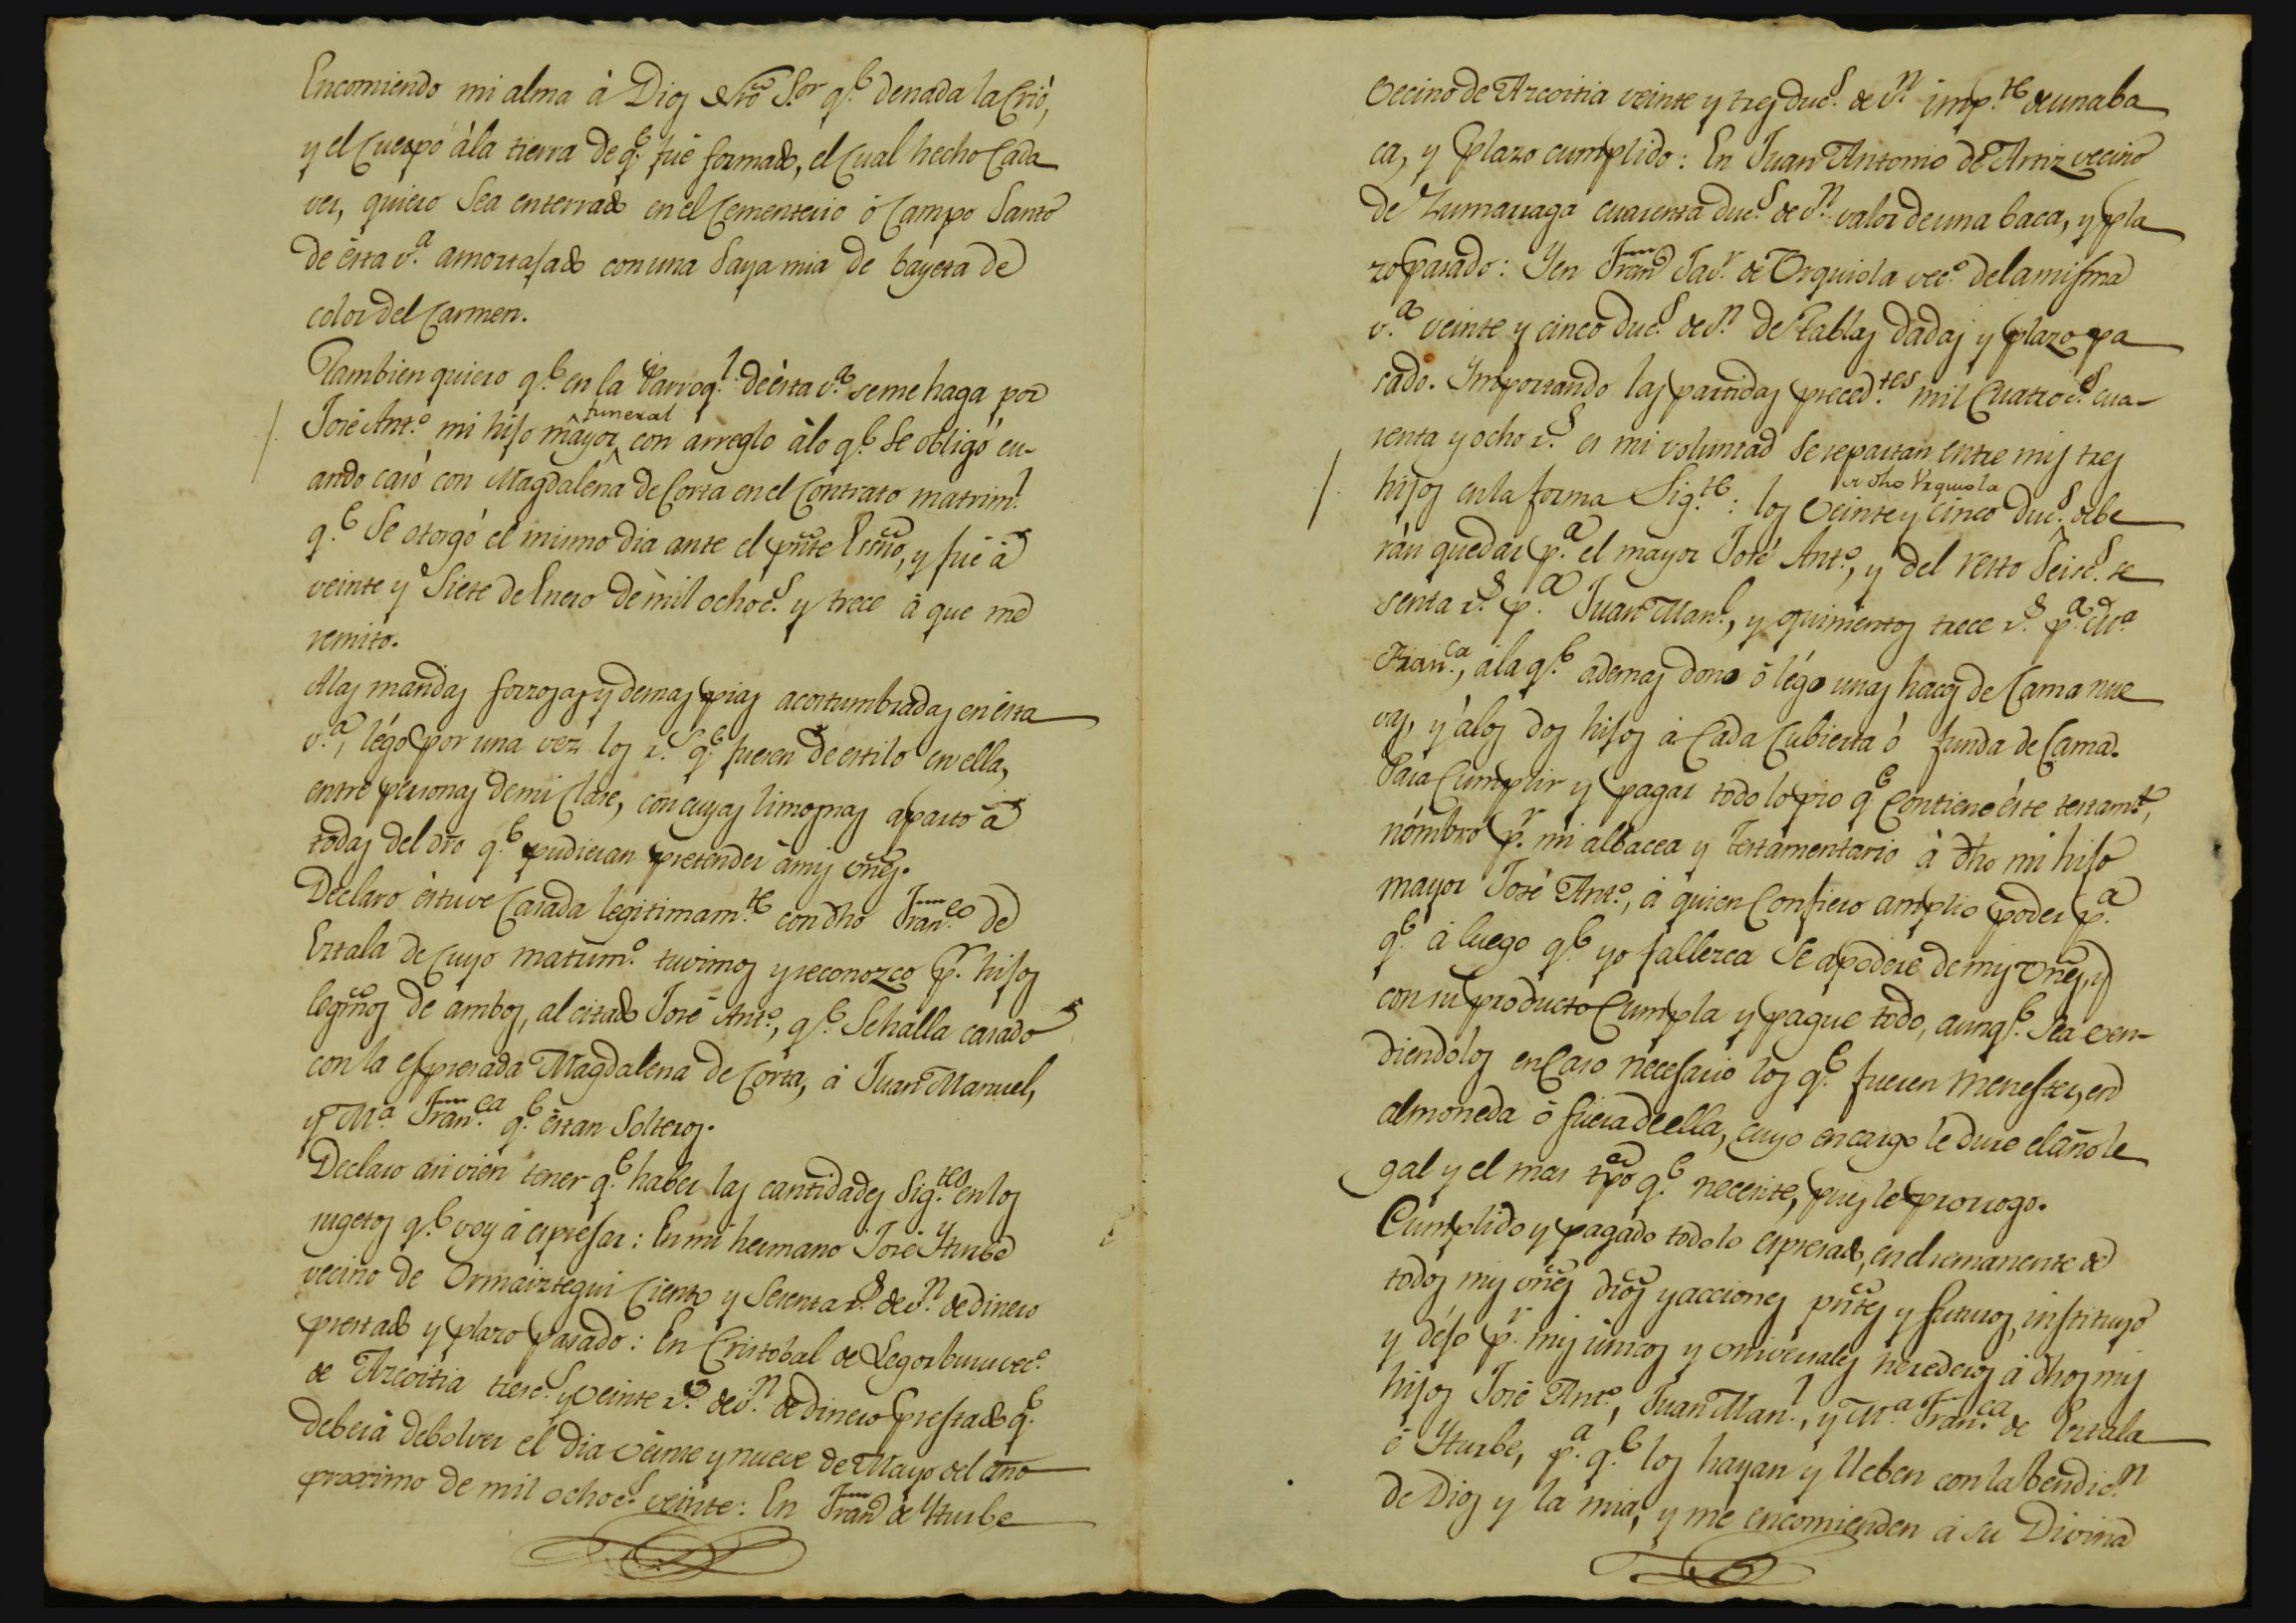 Encomiendo mi alma à Dios Ntrõ S.or q.e denada la Crió,
y el Cuerpo àla tierra de q.e fué formado, el Cual hecho Cada
ver, quiero Sea enterrado en el Cementerio ó Campo Santo
de ésta v.a amortajado con una Saya mia de bayeta de
color del Carmen.
Tambien quiero q.e en la Parroq.l de ésta v.a se me haga por
funeral
José Ant.o mi hijo mayor con arreglo àlo q.e Se obligó cu-
ando casó con Magdalena de Corta en el Contrato matrim.l
q.e Se otorgó el mismo dia ante el pñte Essño, y fué à
veinte y Siete de Enero de mil ochoc.s y trece à que me
remito.
Alas mandas forzosas y demas pias acostumbradas en ésta
v.a, légo por una vez los r.s q.e fueren de estilo en ella,
entre personas demi Clase, con cuyas limosnas aparto à
todas del dr̃o q.e pudieran pretender àmis vñes.
Declaro éstuve Casada legitimam.te con dho Fran.co de
Ertala de Cuyo matrim.o tuvimos y reconozco p.r hijos
legm̃os de ambos, al citado José Ant.o, q.e Sehalla casado
con la espresada Magdalena de Corta, à Juan Manuel,
y M.a Fran.ca q.e éstan Solteros.
Declaro asi vien tener q.e haber las cantidades Sig.tes en los
sugetos q.e voy à espresar: En mi hermano José Yturbe
vecino de Ormaiztegui Ciento y Sesenta r.s de v.n de dinero
prestado y plazo pasado: En Cristobal de Legorburu vec.o
de Azcoitia tresc.s y veinte r.s de v.n de dinero prestado q.e
deberá debolver el dia veinte y nueve de Mayo del año
proximo de mil ochoc.s veinte: En Fran.co de Yturbe
Vecino de Azcoitia veinte y tres duc.s de v.n imp.te de una ba
ca, y plazo cumplido: En Juan Antonio de Artiz vecino
de Zumarraga cuarenta duc.s de v.n valor de una baca, y pla
zo pasado: Y en Fran.co Jav.r de Urquiola vec.o de la misma
v.a veinte y cinco duc.s de v.n de tablas dadas y plazo pa
sado. Ymportando las partidas preced.tes mil Cuatroc.s cua-
renta y ocho r.s es mi voluntad Se repartan entre mis tres
de dho Urquiola
hijos en la forma Sig.te: los Veinte y cinco duc.s debe
rán quedar p.a el mayor José Ant.o, y del resto Seisc.s se
senta r.s p.a Juan Man.l, y quinientos trece r.s p.a M.a
Fran.ca, àla q.e ademas dono ó légo unas haces de Cama nue
vas, y àlos dos hijos à Cada Cubierta ó funda de Cama.
Para Cumplir y pagar todo lo pio q.e Contiene éste testam.to,
nómbro p.r mi albacea y Testamentario à dho mi hijo
mayor José Ant.o, à quien Confiero amplio poder p.a
q.e à luego q.e yo fallezca Se apodere de mis vñes, y
con su producto Cumpla y pague todo, aunq.e Sea ven-
diendolos en Caso necesario los q.e fueren menester, en
almoneda ó fuera de ella, cuyo encargo le dure el año le
gal y el mas tpõ q.e necesite, pues le prorrogo.
Cumplido y pagado todo lo espresado, en el remanente de
todos mis vñes drõs y acciones pñtes y futuros, instituyo
y déjo p.r mis unicos y universales herederos à dhos mis
hijos José Ant.o, Juan Man.l, y M.a Fran.ca de Ertala
é Yturbe, p.a q.e los hayan y lleben con la bendic.n
de Dios y la mia, y me encomienden à su Divina